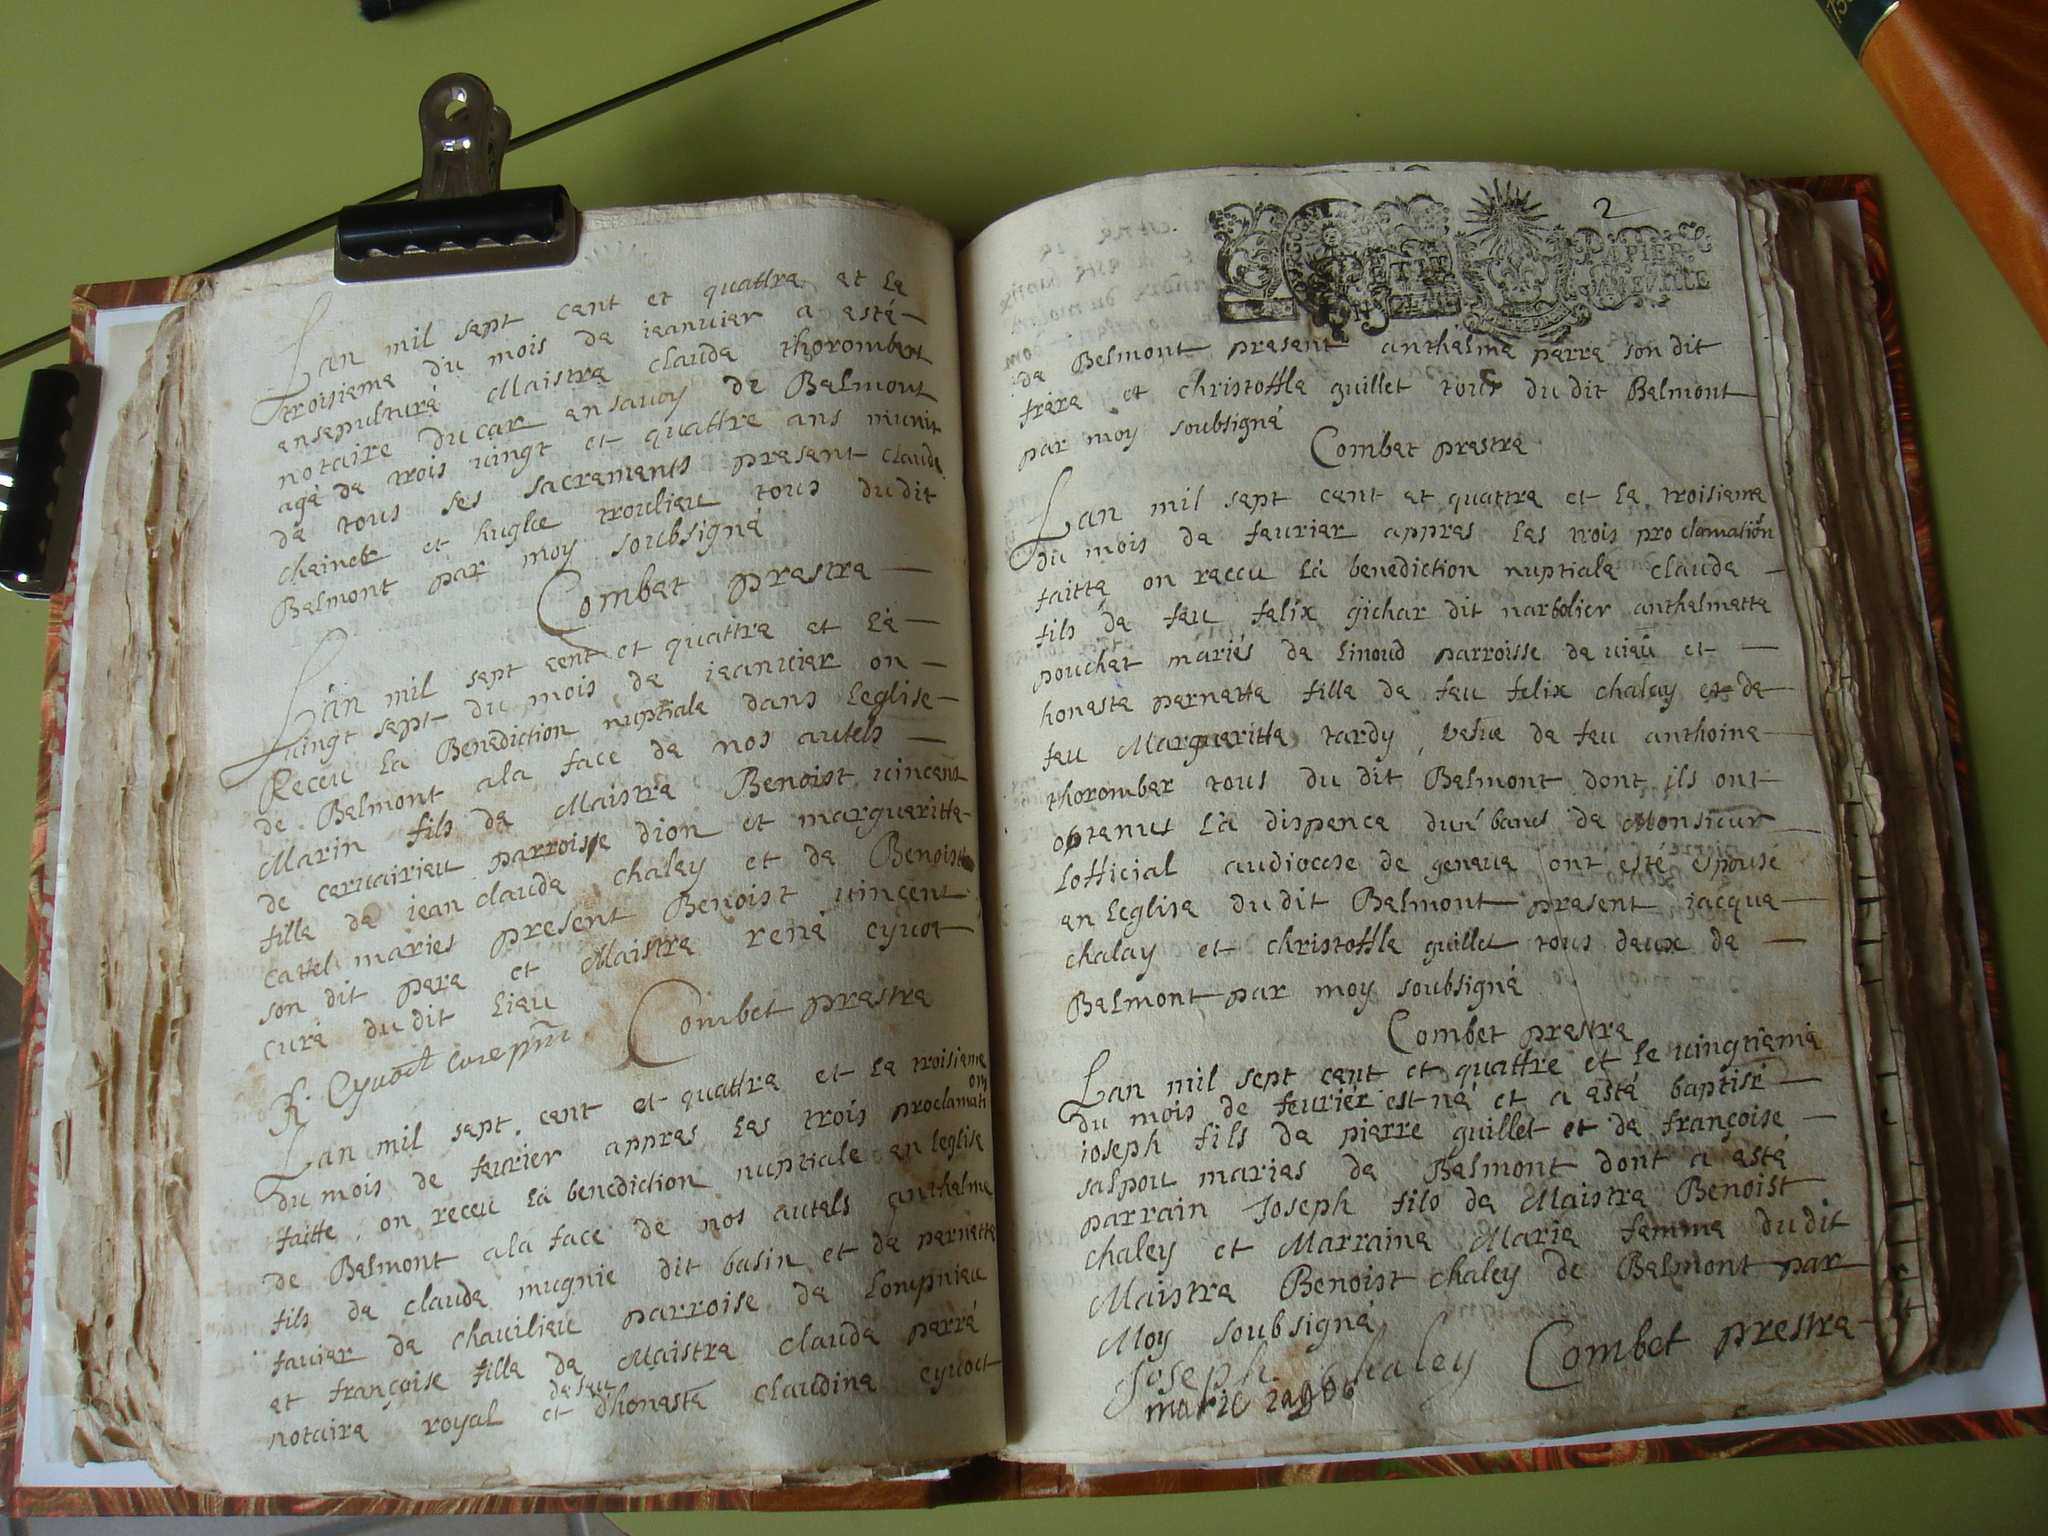 Lan mil sept cent et quattre et le
troisieme du mois de ieanvier a esté
ensepulturé Maistre claude thorombert
notaire ducar en savoy de Belmont
agé de trois vingt et quattre ans munit
de tous ses sacrements present claude
et hugle troulieu tous du dit
Belmont par moy soubsigné
Combet prestre
Lan mil sept cent et quattre et le
vingt sept du mois de ieanvier on
Receu la Benediction nuptiale dans leglise
de Belmont ala face de nos autels
Marin fils de Maistre Benoist vincent
de cervairieu parroisse dion et margueritte
fille de iean claude chaley et de Benoiste
cattel maries present Benoist vincent
son dit pere et Maistre rené eyvot
curé du dit lieu
Combet prestre
R. Eyvoct cure pnt
Lan mil sept cent et quattre et le troisieme
du mois de fevrier appres les trois proclamation
faitte on receu la benediction nuptiale en leglise
de Belmont ala face de nos autels anthelme
fils de claude mugnie dit basin et de pernette
favier de chavilieu parroise de lompnieu
et françoise fille de Maistre claude perré
notaire royal et de feu d'honeste claudine eyvoct
2
PETIT PAPIER
de Belmont present anthelme perre son dit
frere et christoffle guillet tous du dit Belmont
par moy soubsigné
Combet prestre
Lan mil sept cent et quattre et le troisieme
du mois de fevrier appres les trois proclamation
faitte on receu la benediction nuptiale claude
fils de feu felix gichar dit narbolier anthelmette
pouchet mariés de linoud parroisse de vieu et
honeste pernette fille de feu felix chaley et de
feu Margueritte tardy vefve de feu anthoine
thoromber tous du dit Belmont dont ils ont
obtenus la dispence du bancs de Monsieur
lofficial audiocese de geneve ont esté epousé
en leglise du dit Belmont present iacque
chaley et christoffle guillet tous deux de
Belmont par moy soubsigné
Combet prestre
Lan mil sept cent et quattre et le vingtieme
du mois de fevrier est né et a esté baptisé
ioseph fils de pierre guillet et de françoise
salpou maries de Belmont dont a esté
parrain Joseph fils de Maistre Benoist
chaley et Marraine Marie femme du dit
Maistre Benoist chaley de Belmont par
Moy soubsigné
Joseph chaley Combet prestre
marie